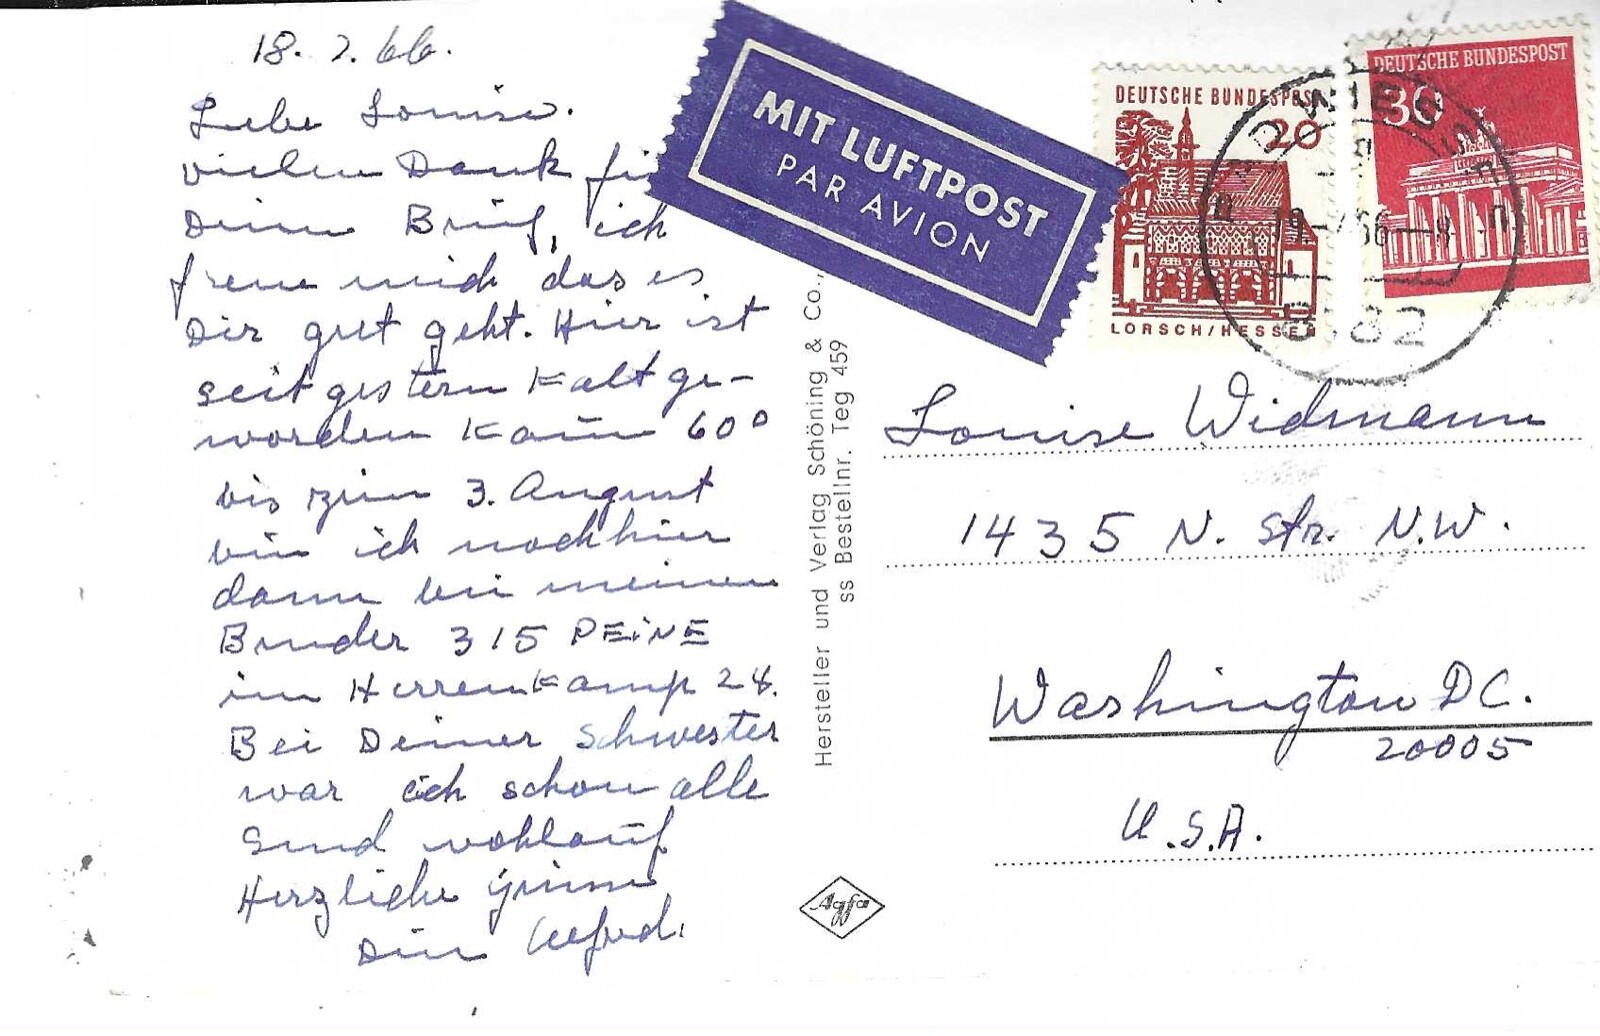 18. 7. 66.
Liebe Louise.
vielen Dank für
Deinen Brief, ich
freue mich das es
Dir gut geht. Hier ist
seit gestern kalt ge-
worden kaum 60°
bis zum 3. August
bin ich noch hier
dann bei meinem
Bruder 315 PEINE
im Herrenkamp 28.
Bei Deiner Schwester
war ich schon alle
Sind wohlauf
Herzliche Grüsse
Dein Alfred.
MIT LUFTPOST
PAR AVION
DEUTSCHE BUNDESPOST
20
LORSCH/HESSEN
DEUTSCHE BUNDESPOST
30
Louise Widmann
1435 N. Str. N.W.
Washington DC.
20005
U.S.A.
Hersteller und Verlag Schöning & Co.,
ss Bestellnr. Teg 459
Agfa